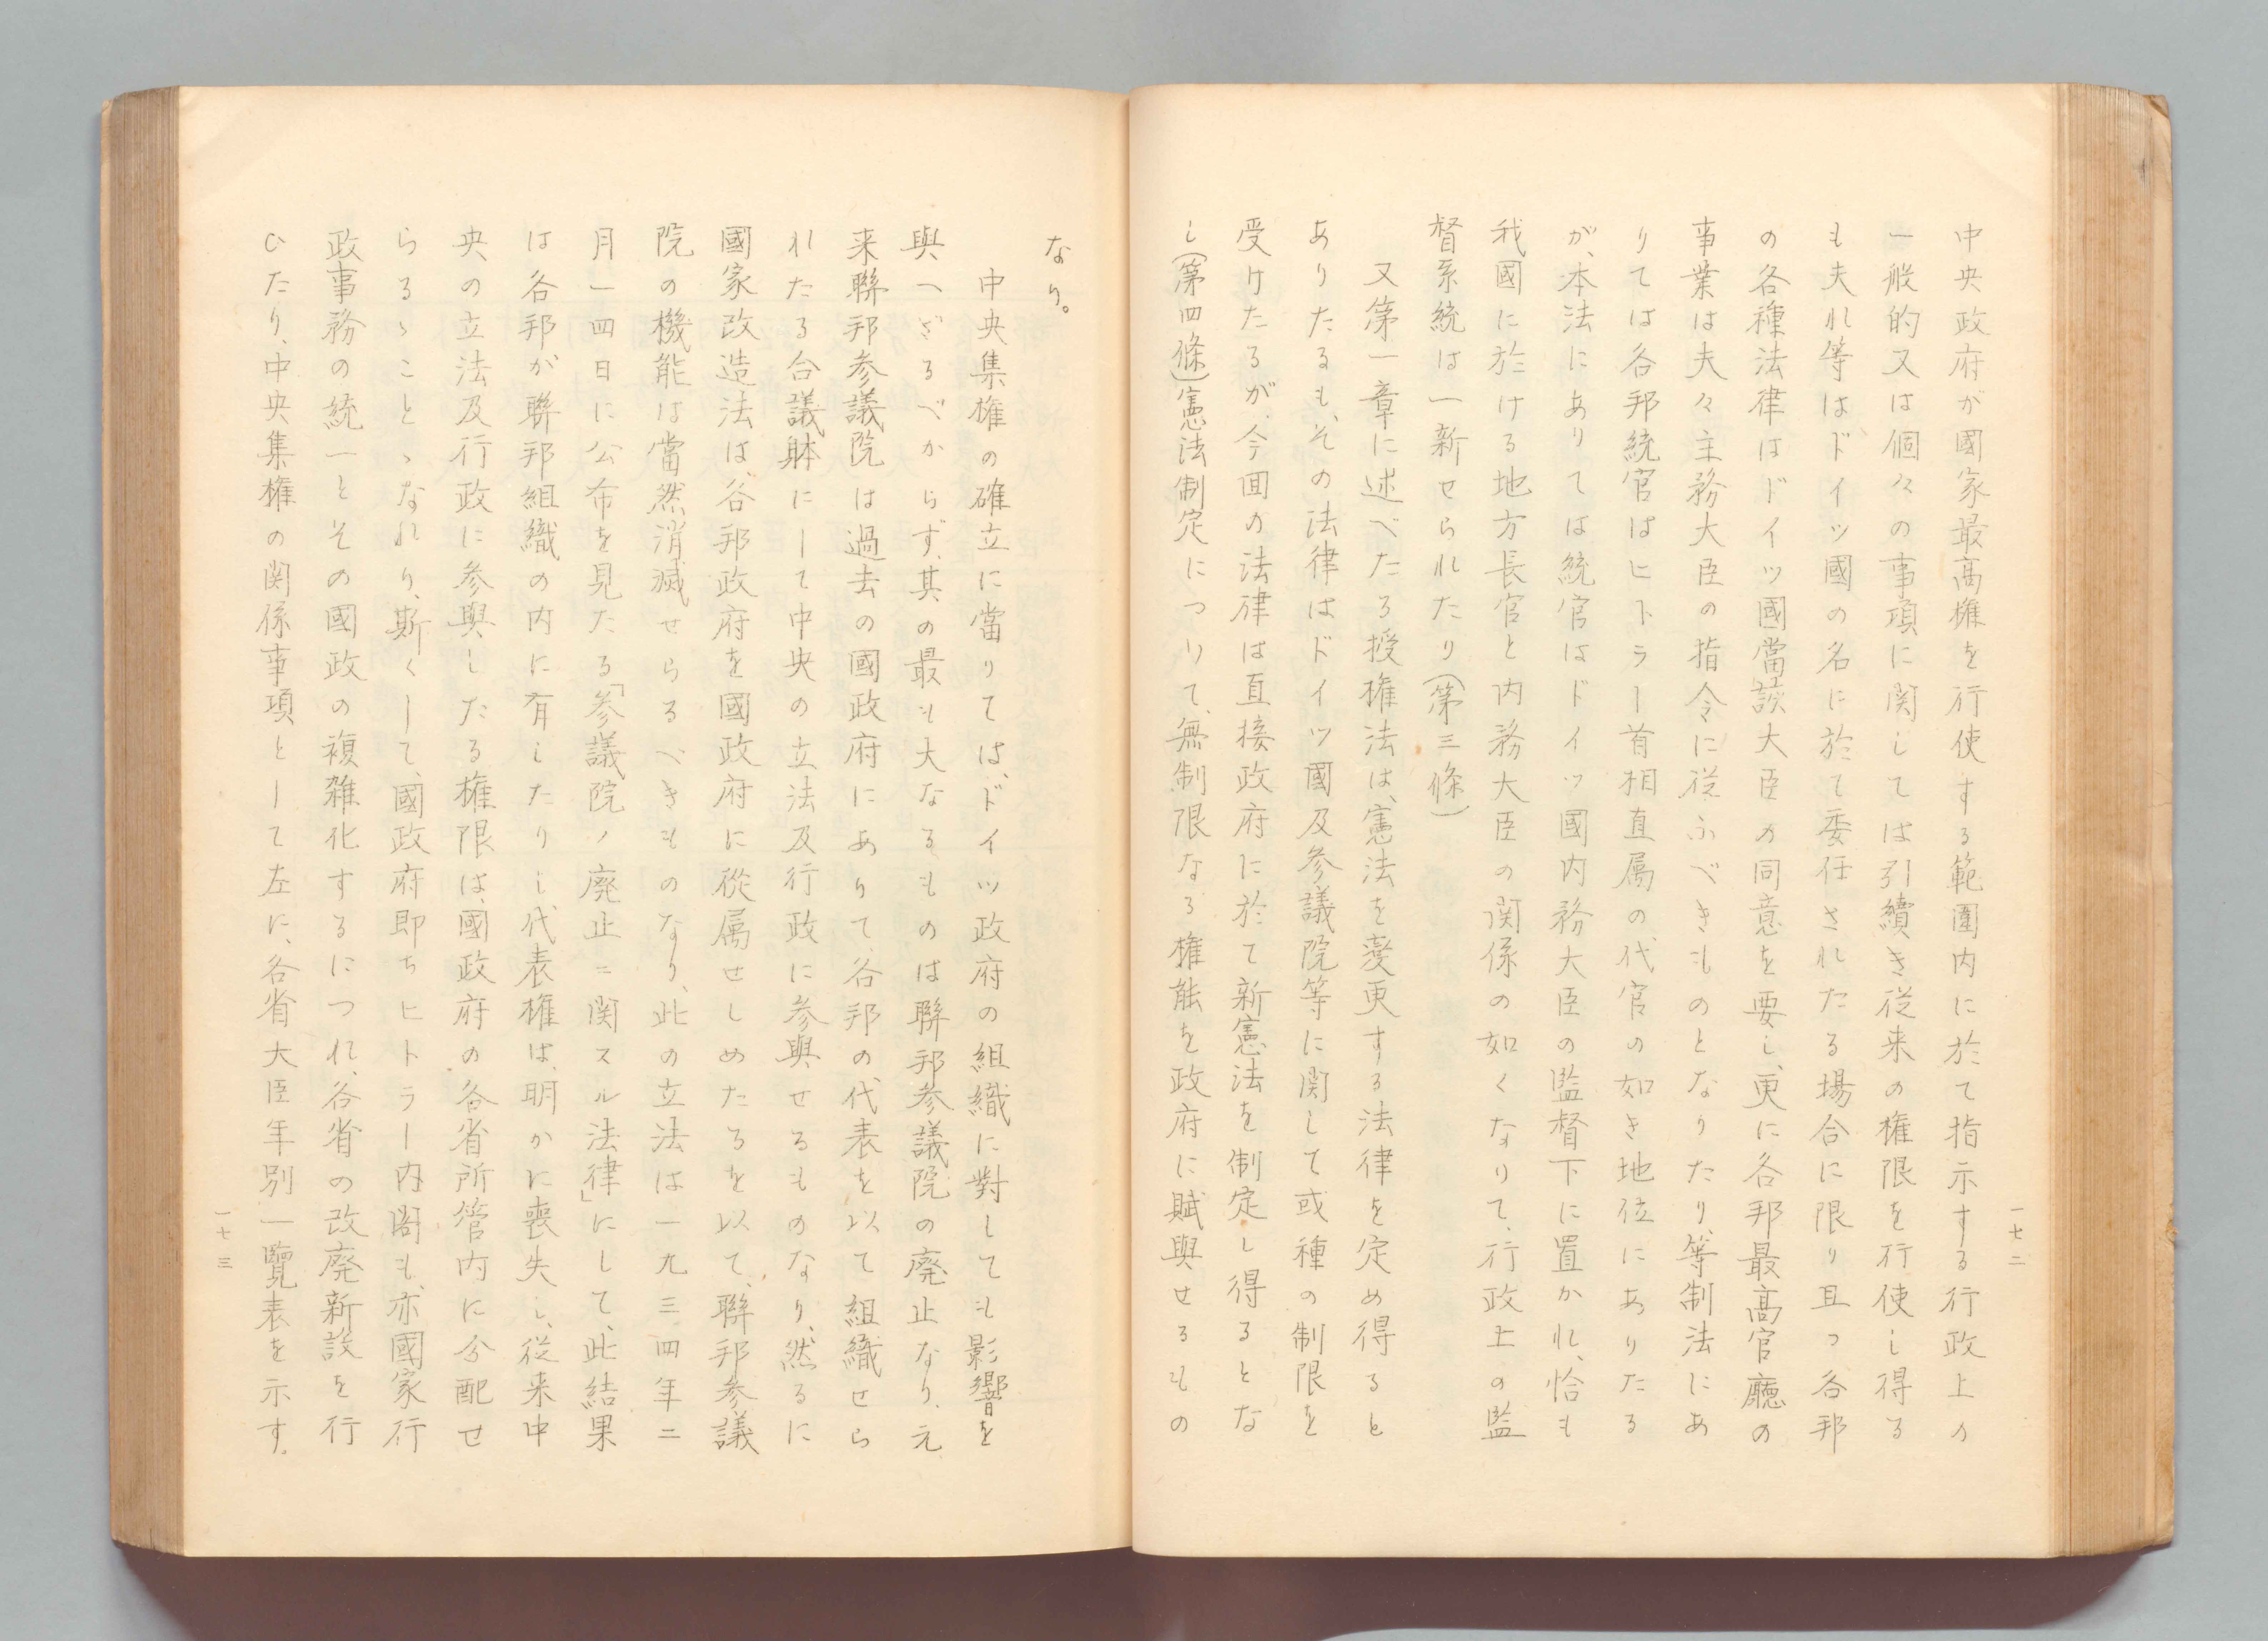 中央政府が國家最高権を行使する範圍内に於て指示する行政上の
一般的又は個々の事項に関しては引續き従来の権限を行使し得る
も夫れ等はドイツ國の名に於て委任されたる場合に限り且つ各邦
の各種法律はドイツ國當該大臣の同意を要し、更に各邦最高官廳の
事業は夫々主務大臣の指令に従ふべきものとなりたり、等制法にあ
りては各邦統官はヒトラー首相直属の代官の如き地位にありたる
が、本法にありては統官はドイツ國内務大臣の監督下に置かれ、恰も
我國に於ける地方長官と内務大臣の関係の如くなりて、行政上の監
督系統は一新せられたり(第三條)
又第一章に述べたる授権法は、憲法を変更する法律を定め得ると
ありたるも、その法律はドイツ國及参議院等に関して或種の制限を
受けたるが、今回の法律は直接政府に於て新憲法を制定し得るとな
し(第四條)憲法制定につりて、無制限なる権能を政府に賦與せるもの
一七二
なり。
中央集権の確立に當りては、ドイツ政府の組織に對しても影響を
與へざるべからず、其の最も大なるものは聯邦参議院の廃止なり、元
来聯邦参議院は過去の國政府にありて、各邦の代表を以て組織せら
れたる合議躰にして中央の立法及行政に参與せるものなり、然るに
國家改造法は、各邦政府を國政府に從属せしめたるを以て、聯邦参議
院の機能は當然消滅せらるべきものなり、此の立法は一九三四年二
月一四日に公布を見たる「参議院ノ廃止ニ関スル法律」にして、此結果
は各邦が聯邦組織の内に有したりし、代表権は、明かに喪失し、従来中
央の立法及行政に参與したる権限は、國政府の各省所管内に分配せ
らるゝことゝなれり、斯くして、國政府即ちヒトラー内閣も、亦國家行
政事務の統一とその國政の複雑化するにつれ、各省の改廃新設を行
ひたり、中央集権の関係事項として左に、各省大臣年別一覽表を示す。
一七三